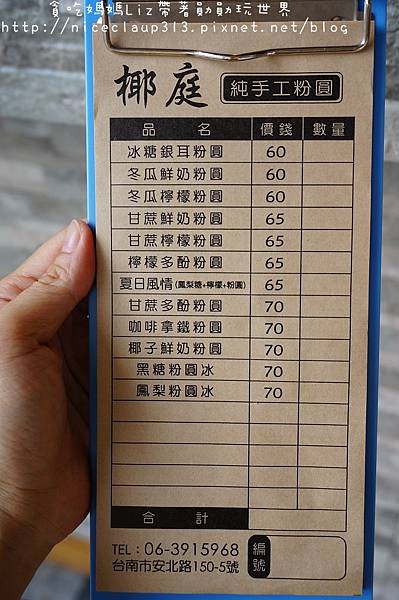 貪吃媽媽Liz帶著勛勛玩世界
http://niceclaup313.pixnet.net/blog
椰庭 純手工粉圓
品名 價錢 數量
冰糖銀耳粉圓 60
冬瓜鮮奶粉圓 60
冬瓜檸檬粉圓 60
甘蔗鮮奶粉圓 65
甘蔗檸檬粉圓 65
檸檬多酚粉圓 65
夏日風情(鳳梨糖+檸檬+粉圓) 65
甘蔗多酚粉圓 70
咖啡拿鐵粉圓 70
椰子鮮奶粉圓 70
黑糖粉圓冰 70
鳳梨粉圓冰 70
合計
TEL：06-3915968 編號
台南市安北路150-5號